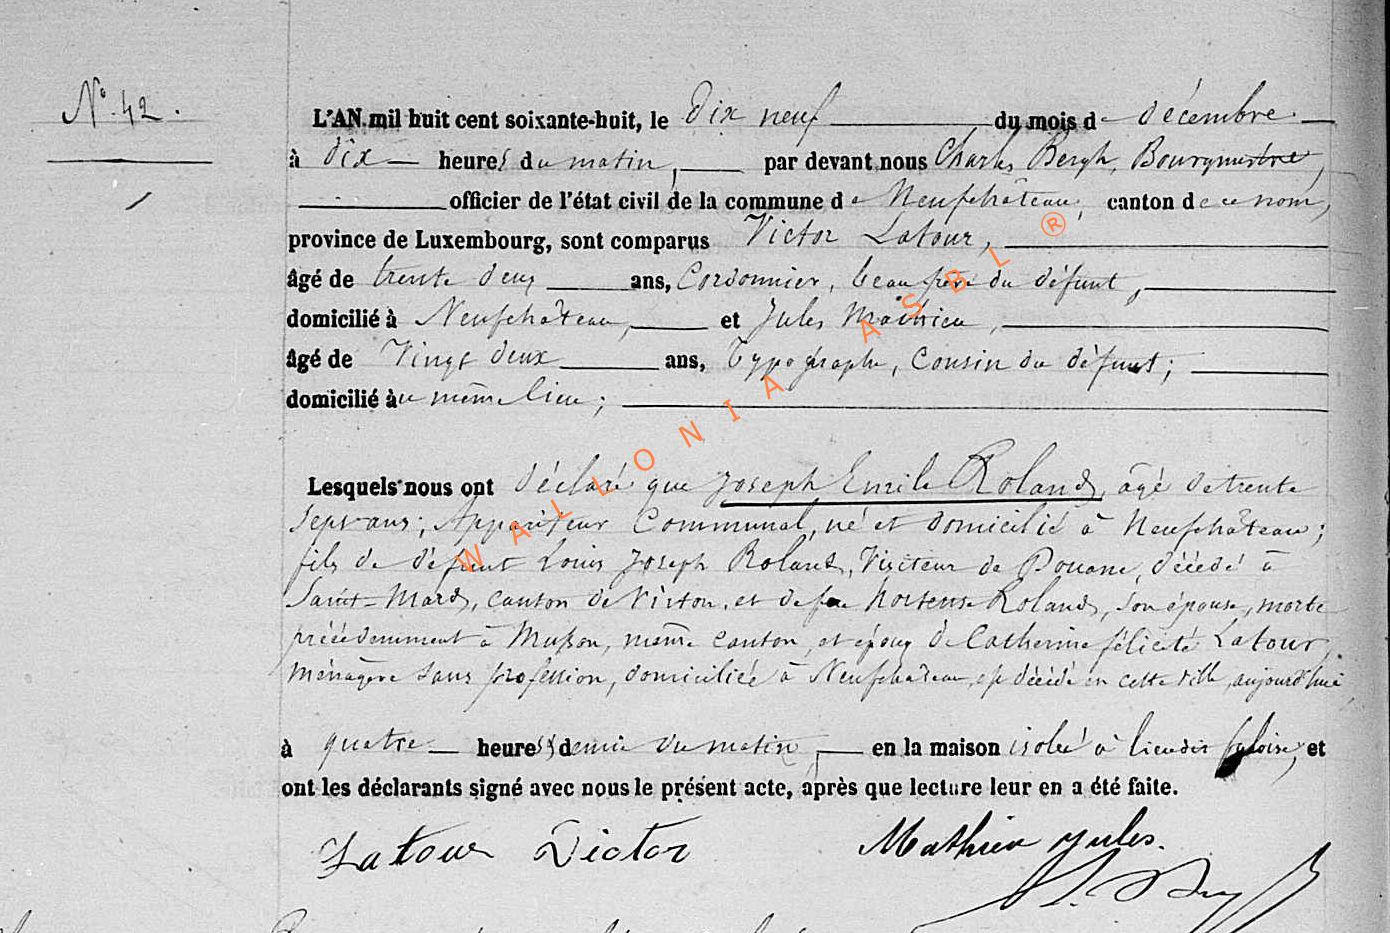 N° 42.
L'AN mil huit cent soixante-huit, le Dix neuf du mois de décembre
à Dix heures du matin, par devant nous Charles Bergh, Bourgmestre,
officier de l'état civil de la commune de Neufchâteau, canton de ce nom,
province de Luxembourg, sont comparus Victor Latour,
âgé de trente deux ans, Cordonnier, beau frère du défunt,
domicilié à Neufchâteau, et Jules Mathieu,
âgé de Vingt deux ans, Typographe, Cousin du défunt;
domicilié au même lieu;
Lesquels nous ont déclaré que Joseph Emile Roland, âgé de trente
Sept ans; Appariteur Communal, né et domicilié à Neufchâteau;
fils de défunt Louis Joseph Roland, Visiteur de Douane, décédé à
Saint-Mard, canton de Virton, et de feue Hortense Roland, son épouse, morte
précédemment à Musson, même canton, et époux de Catherine félicité Latour,
ménagère sans profession, domiciliée à Neufchâteau, est décédé en cette ville, aujourd'hui
à quatre heures & demie du matin, en la maison isolée à lieudit et
ont les déclarants signé avec nous le présent acte, après que lecture leur en a été faite.
Latour Victor Mathieu Jules.
WALLONIA ASBL ®